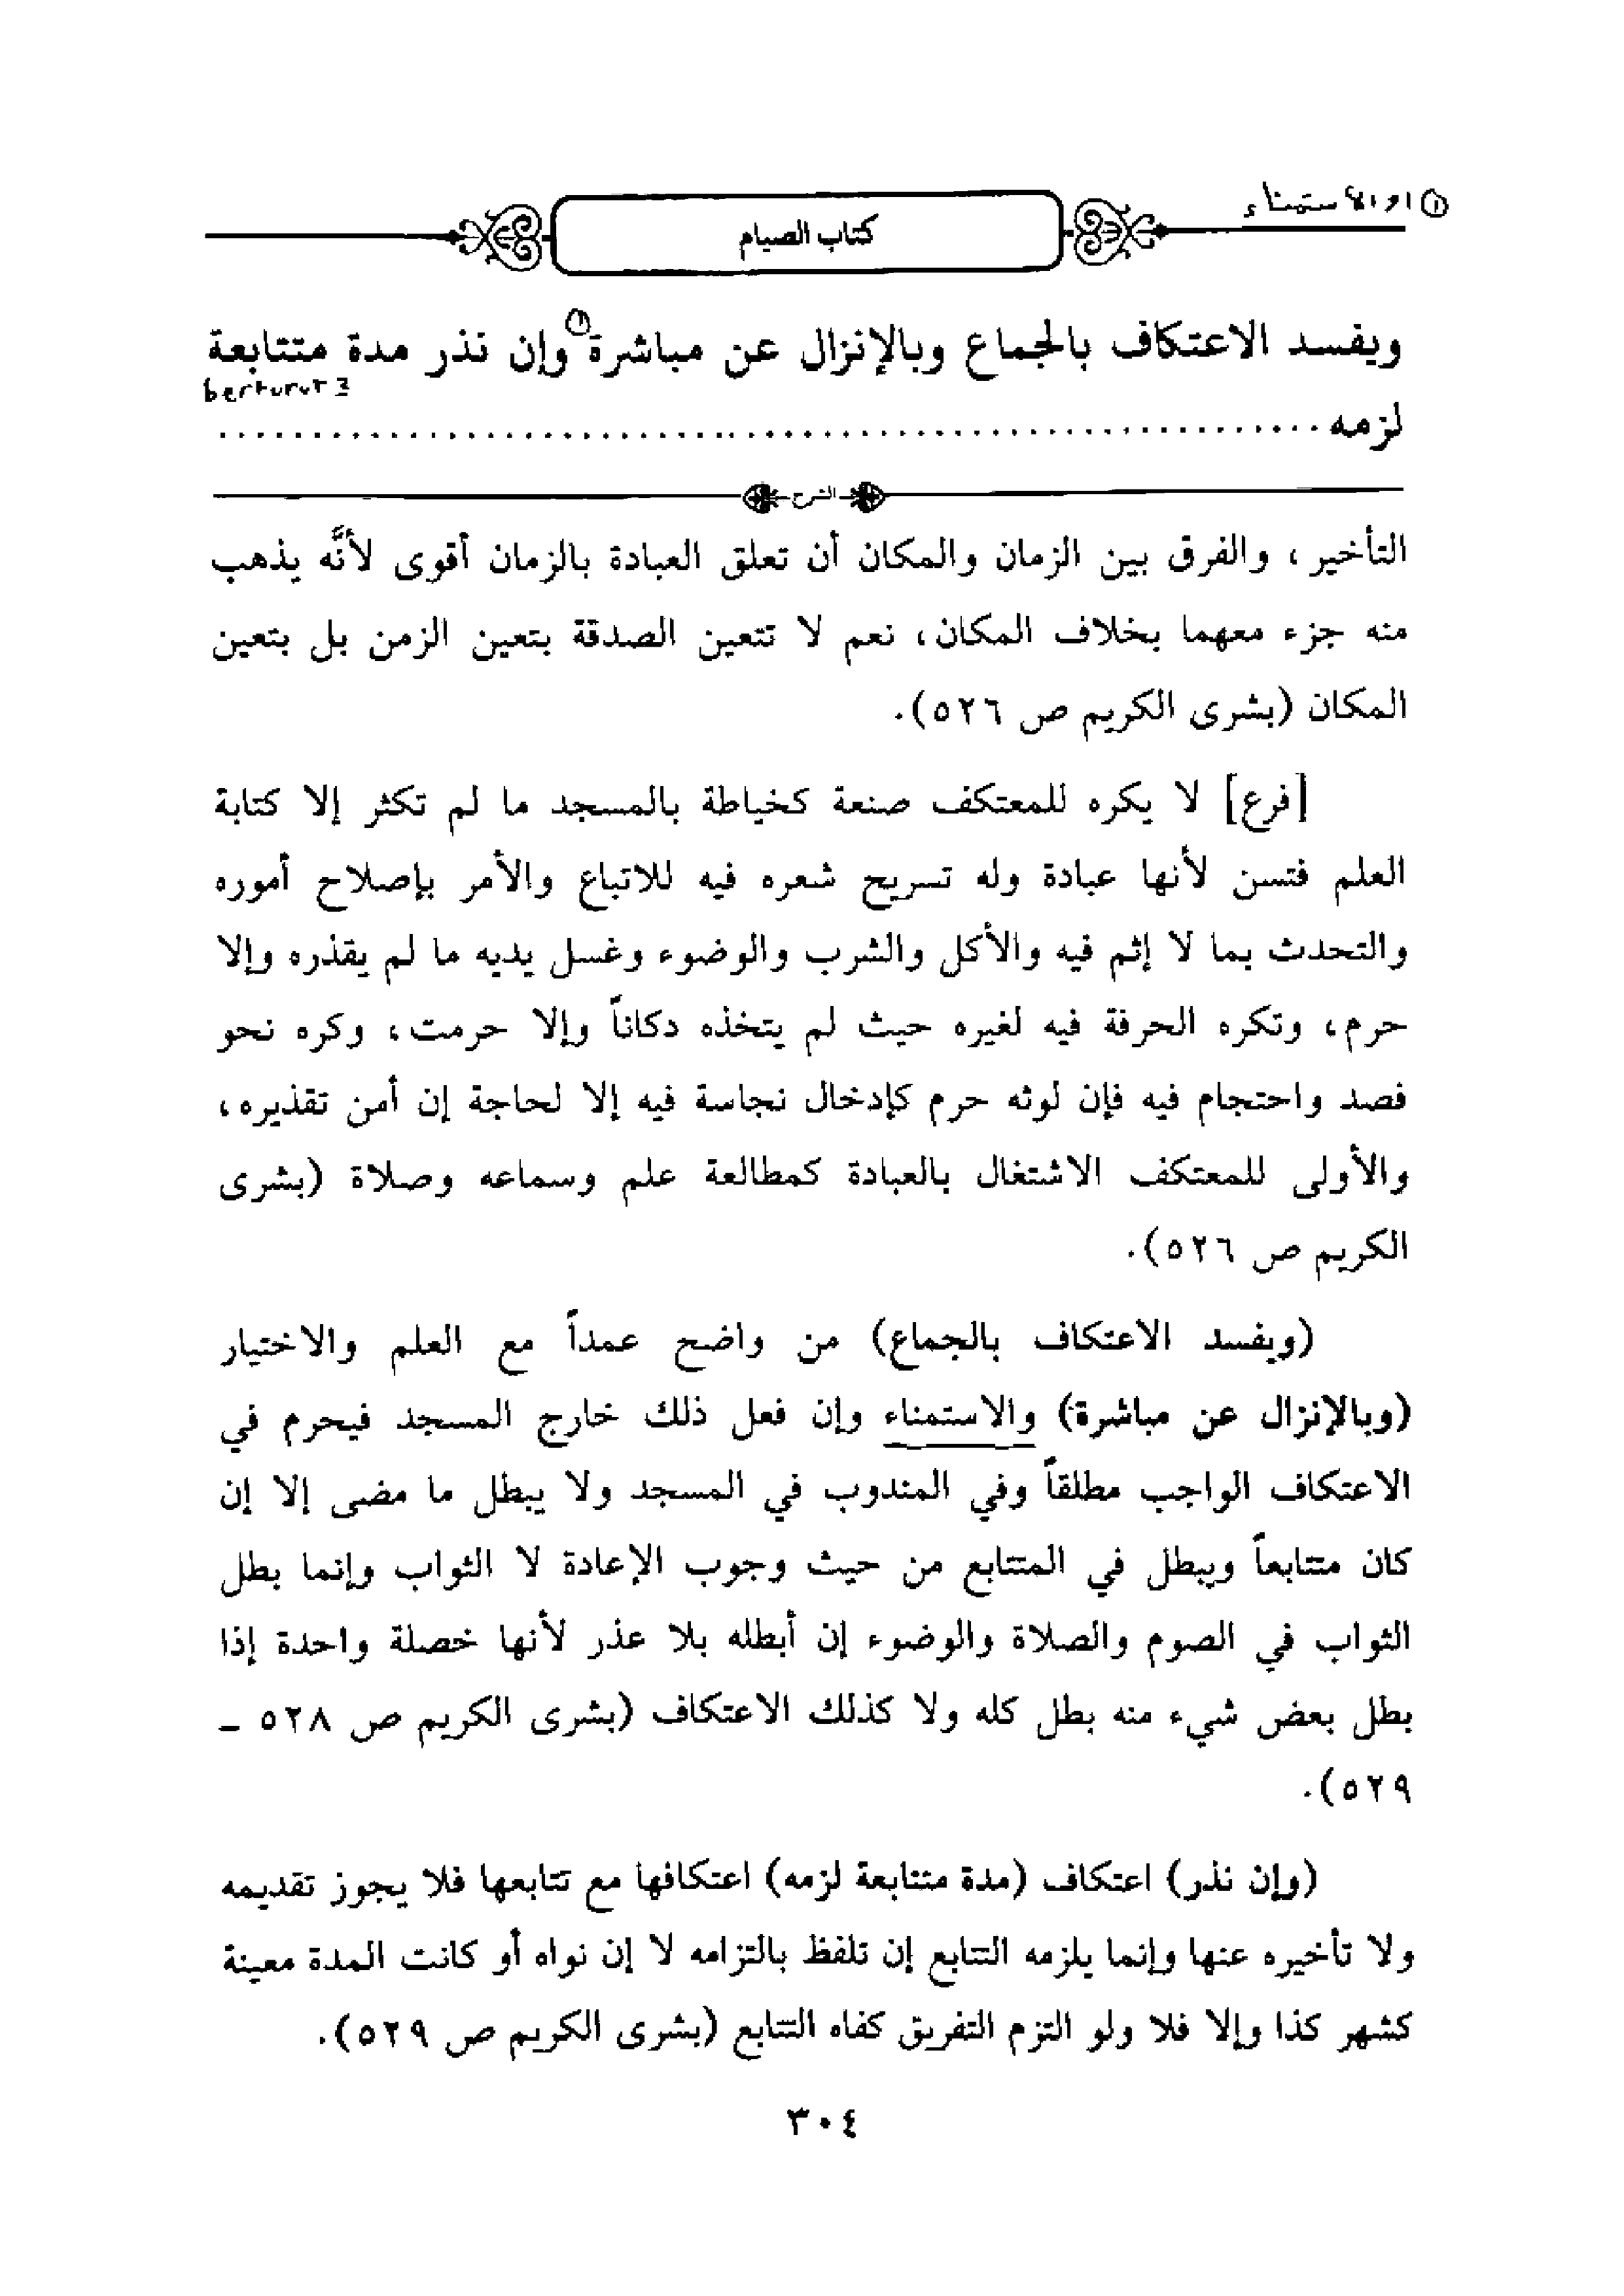 ① او الاستمناء
كتاب الصيام
ويفسد الاعتكاف بالجماع وبالإنزال عن مباشرة ① وإن نذر مدة متتابعة
berturut2
لزمه ............................................................
الشرح
التأخير، والفرق بين الزمان والمكان أن تعلق العبادة بالزمان أقوى لأنَّه يذهب
منه جزء معهما بخلاف المكان، نعم لا تتعين الصدقة بتعين الزمن بل بتعين
المكان (بشرى الكريم ص ٥٢٦).
[فرع] لا يكره للمعتكف صنعة كخياطة بالمسجد ما لم تكثر إلا كتابة
العلم فتسن لأنها عبادة وله تسريح شعره فيه للاتباع والأمر بإصلاح أموره
والتحدث بما لا إثم فيه والأكل والشرب والوضوء وغسل يديه ما لم يقذره وإلا
حرم، وتكره الحرفة فيه لغيره حيث لم يتخذه دكاناً وإلا حرمت، وكره نحو
فصد واحتجام فيه فإن لوثه حرم كإدخال نجاسة فيه إلا لحاجة إن أمن تقذيره،
والأولى للمعتكف الاشتغال بالعبادة كمطالعة علم وسماعه وصلاة (بشرى
الكريم ص ٥٢٦).
(ويفسد الاعتكاف بالجماع) من واضح عمداً مع العلم والاختيار
(وبالإنزال عن مباشرة) والاستمناء وإن فعل ذلك خارج المسجد فيحرم في
الاعتكاف الواجب مطلقاً وفي المندوب في المسجد ولا يبطل ما مضى إلا إن
كان متتابعاً ويبطل في المتتابع من حيث وجوب الإعادة لا الثواب وإنما بطل
الثواب في الصوم والصلاة والوضوء إن أبطله بلا عذر لأنها خصلة واحدة إذا
بطل بعض شيء منه بطل كله ولا كذلك الاعتكاف (بشرى الكريم ص ٥٢٨ -
٥٢٩).
(وإن نذر) اعتكاف (مدة متتابعة لزمه) اعتكافها مع تتابعها فلا يجوز تقديمه
ولا تأخيره عنها وإنما يلزمه التتابع إن تلفظ بالتزامه لا إن نواه أو كانت المدة معينة
كشهر كذا وإلا فلا ولو التزم التفريق كفاه التتابع (بشرى الكريم ص ٥٢٩).
٣٠٤